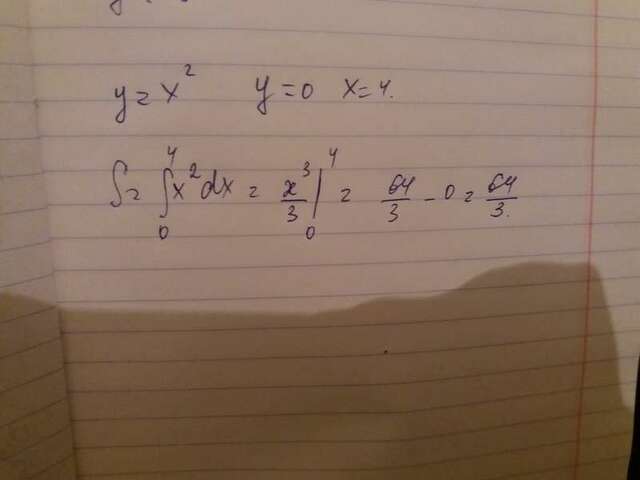 y = x² y = 0 x = 4.
S = ∫₀⁴ x² dx = x³/3 |₀⁴ = 64/3 - 0 = 64/3.